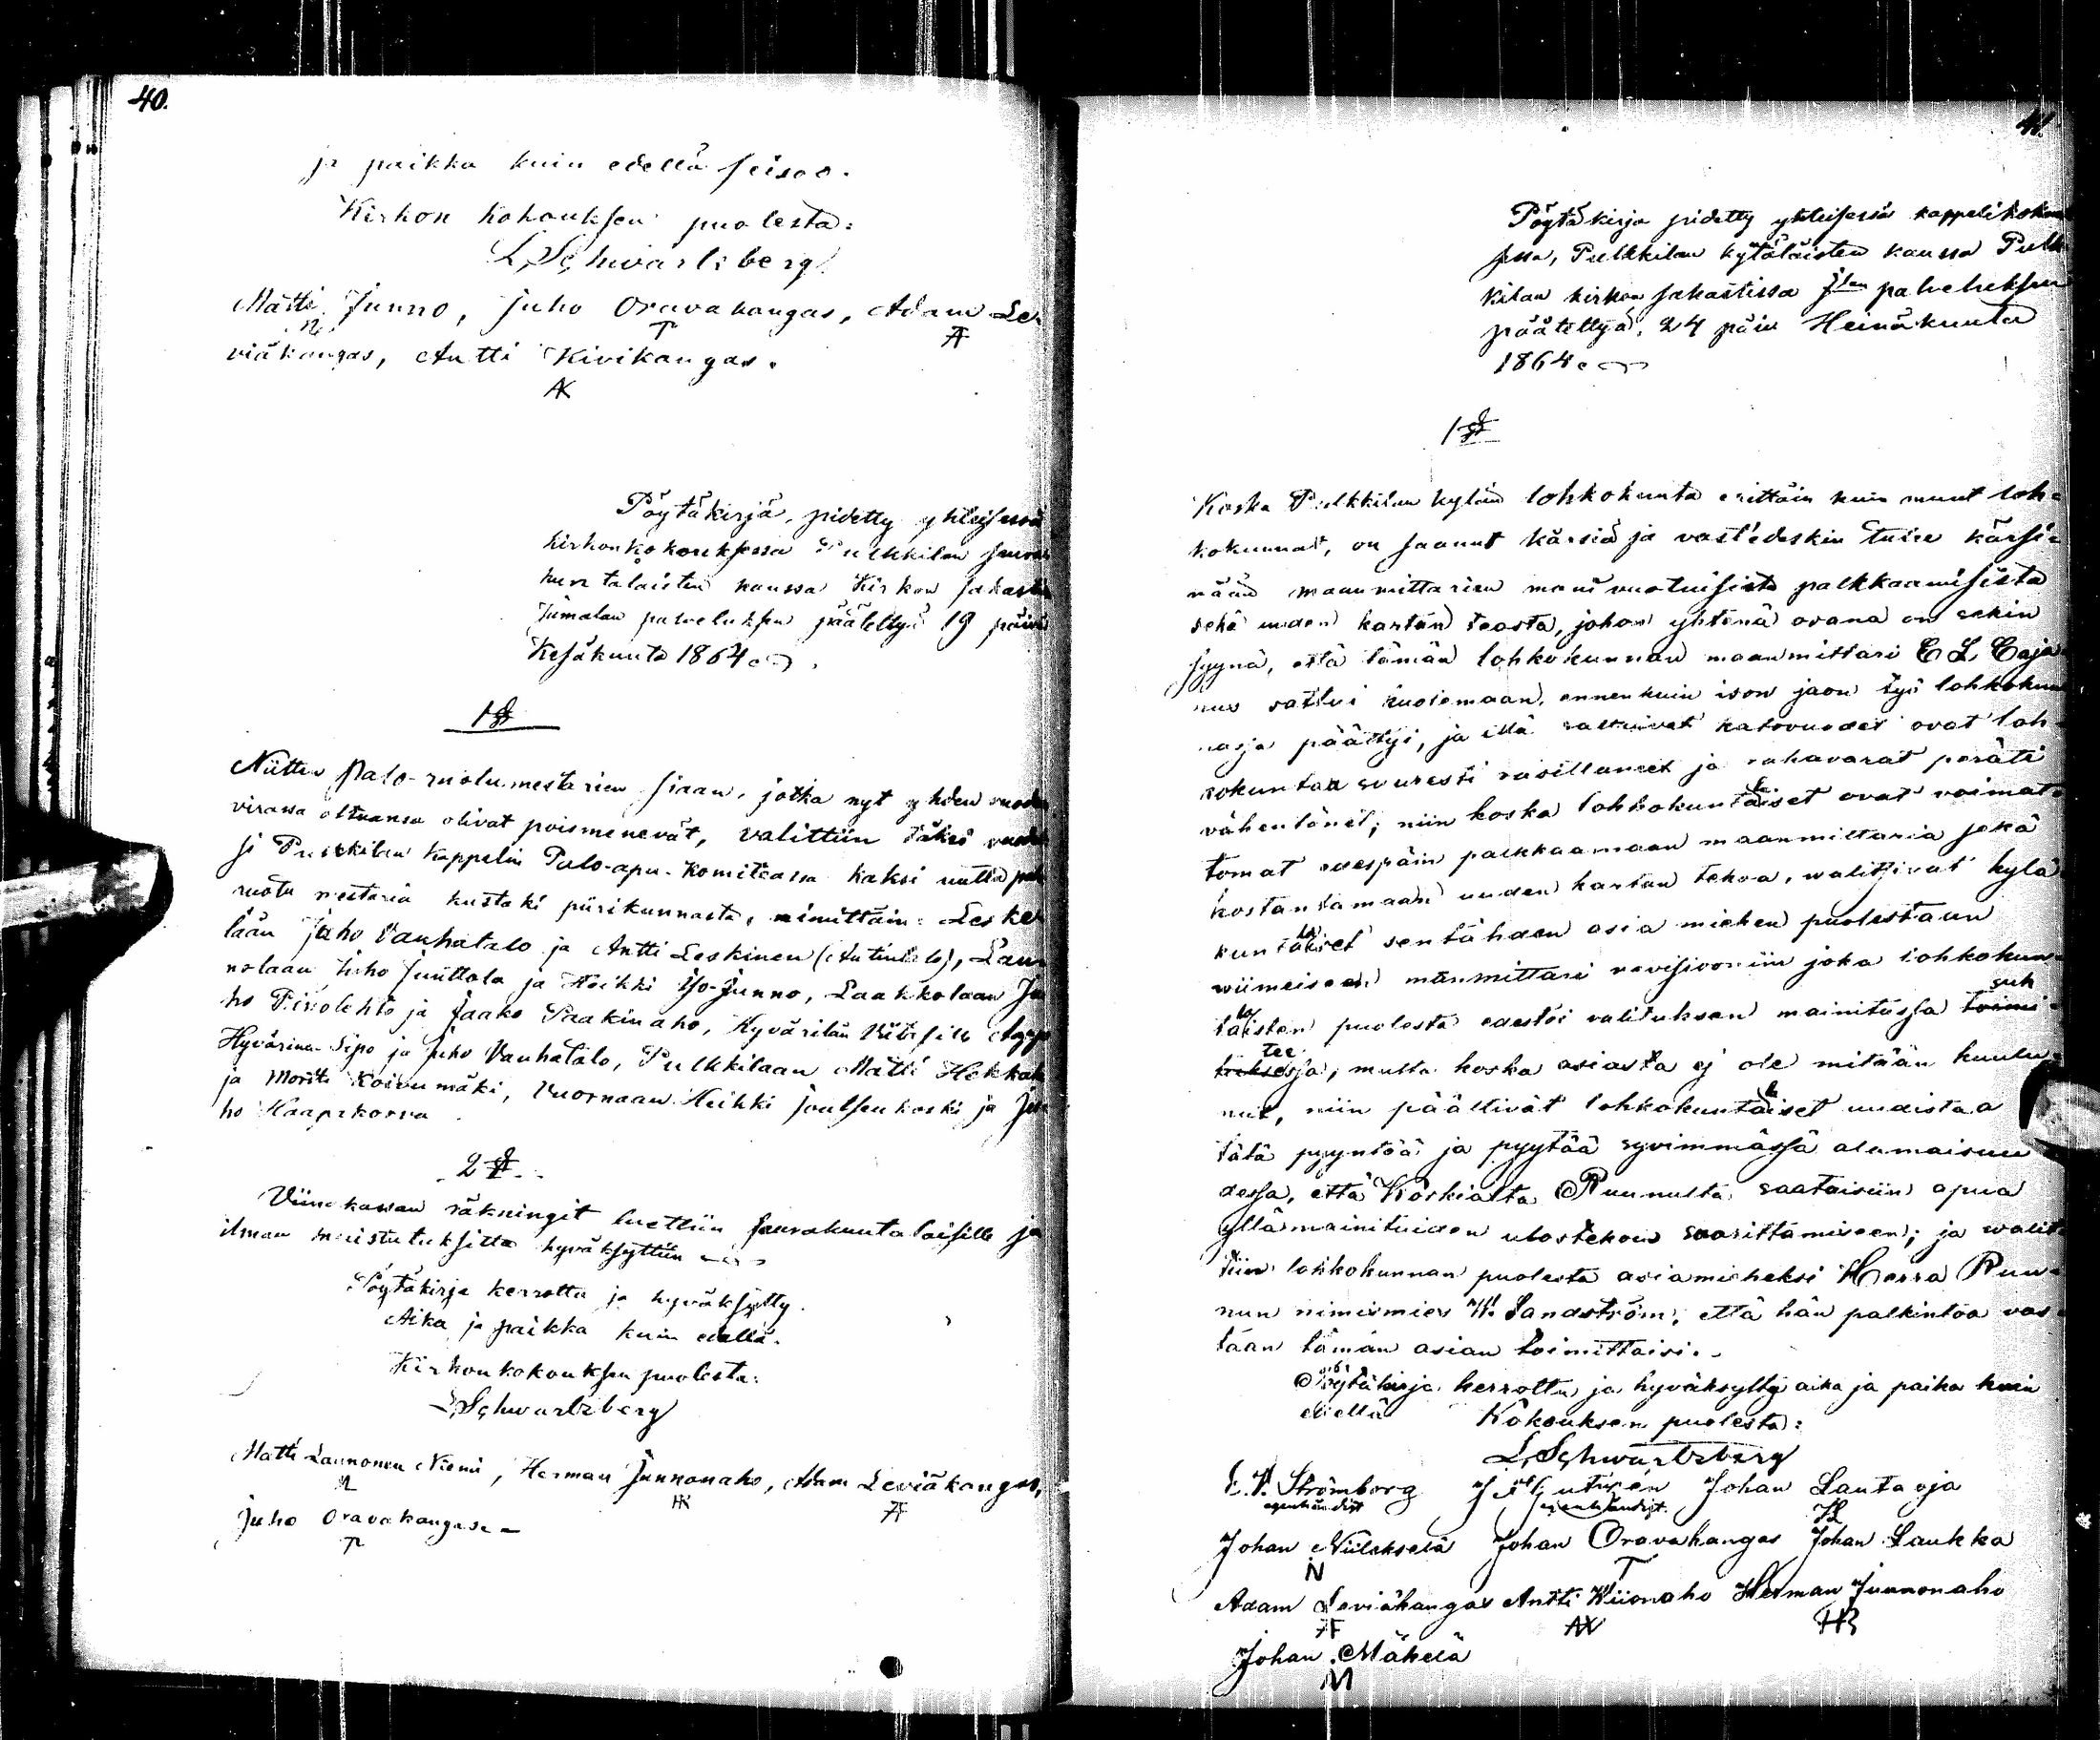 40.
ja paikka kuin edellä seisoo.
Kirkon kokouksen puolesta:
L. Schwartsberg
Matti Junno, Juho Oravakangas, Adam Le
viäkangas, Antti Kivikangas.
AK
Pöytäkirja, pidetty yhteisessä
kirkonkokouksessa Pulkkilan seura
kuntalaisten kanssa Kirkon sakasti
Jumalan palveluksen päätettyä 19 päivä
Kesäkuuta 1864
1 §
Niitten Palo-ruotumestarien siaan, jotka nyt yhden vuoden
virassa oltuansa olivat poismenevät, valittiin täksi vuode
si Pulkkilan Kappelin Palo-apu-Komiteassa kaksi uutta palo
ruotu mestaria kustaki piirikunnasta, nimittäin: Leske
lään Juho Vanhatalo ja Antti Leskinen (Antintalo), Laun
nolaan Juho Junttola ja Heikki Iso-Junno, Laakkolaan Ju
ho Pirolehto ja Jaako Paakinaho, Hyvärilän
Hyvärinen Sipo ja Juho Vanhatalo, Pulkkilaan Matti Hokkala
ja Moritz Koivumäki, Vuornaan Heikki Joutsenkoski ja Ju
ho Haapakorva
2 §
Viinakassan räkningit luettiin seurakuntalaisille ja
ilman muistutuksitta hyväksyttiin
Pöytäkirja kerrottu ja hyväksytty.
Aika ja paikka kuin edellä.
Kirkonkokouksen puolesta:
L. Schwartzberg
Matti Launonen Niemi, Herman Junnonaho, Adam Leviäkangas,
Juho Oravakangas.
41.
Pöytäkirja pidetty yhteisessä kappelikokouk
sessa, Pulkkilan kytöläisten kanssa Pulk
kilan kirkon sakastissa Jlan palveluksen
päätettyä, 24 päiv Heinäkuuta
1864
1 §
Koska Pulkkilan kylän lohkokunta erittäin kuin muut loh=
kokunnat, on saanut kärsiä ja vastedeskin tulee kärsi=
mään maanmittarien moni vuotuisista palkkaamisista
sekä uuden kartan teosta, johon yhtenä osana on sekin
syynä, että tämän lohkokunnan maanmittari C L Caja
nus sattui kuolemaan, ennenkuin ison jaon työ lohkokun
nasja päättyi, ja että sattuivat katovuodet ovat loh
kokuntaa suuresti rasittaneet ja rahavarat peräti
vähentänet; niin koska lohkokuntalaiset ovat voimat
tomat edespäin palkkaamaan maanmittaria sekä
kostantamaan uuden kartan tekoa, valittivat kylä
kuntalaiset sentähden asia miehen puolestaan
viimeiseen manmittari revisiooniin joka lohkokun=
talaisten puolesta edestoi valituksen mainitussa toimi suh
tuksessa tee, mutta koska asiasta ej ole mitään kuulu=
nut, niin päättivät lohkokuntalaiset uudistaa
tätä pyyntöä ja pyytää syvimmässä alamaisuu
dessa, että Korkialta Ruunulta saataisiin apua
yllämainituiden ulostekoin suorittamiseen; ja valit
tiin lohkokunnan puolesta asiamieheksi Herra Ruu=
nun nimismies W. Sandström, että hän palkintoa vas=
taan tämän asian toimittaisi.
Pöytäkirja kerrottu ja hyväksytty aika ja paika kuin
edellä Kokouksen puolesta:
L. Schwartzberg
Strömborg Johan Lautaoja
egenhändigt egenhändigt
Johan Niileksela Johan Oravakangas Johan Laukka
N T
Adam Leviäkangas Antti Kiionaho Herman Junnonaho
Johan Mäkelä
M